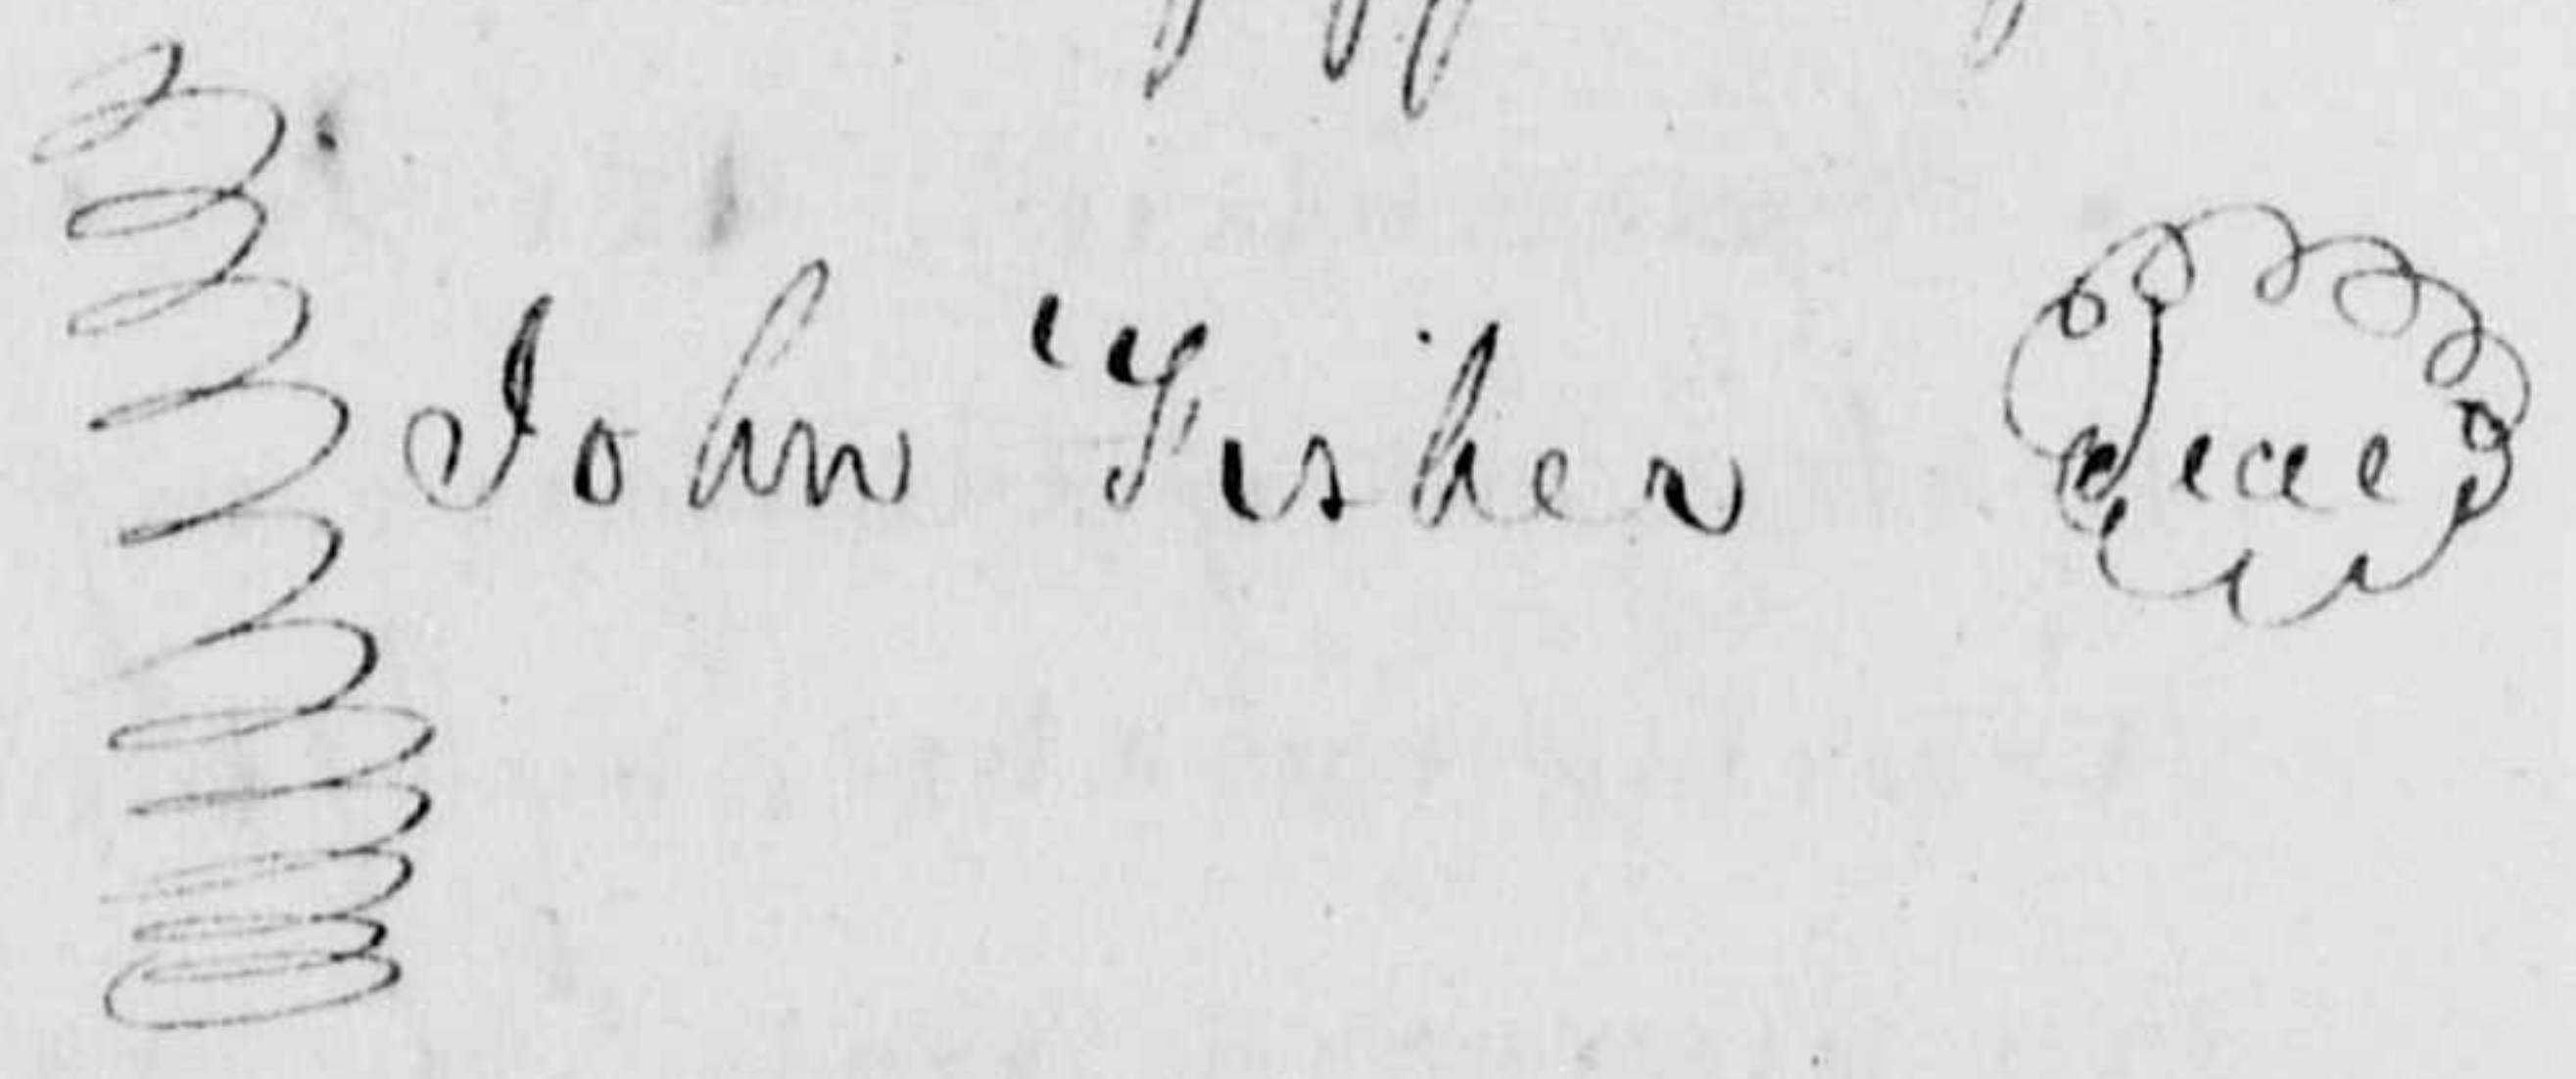 John Fisher Seal